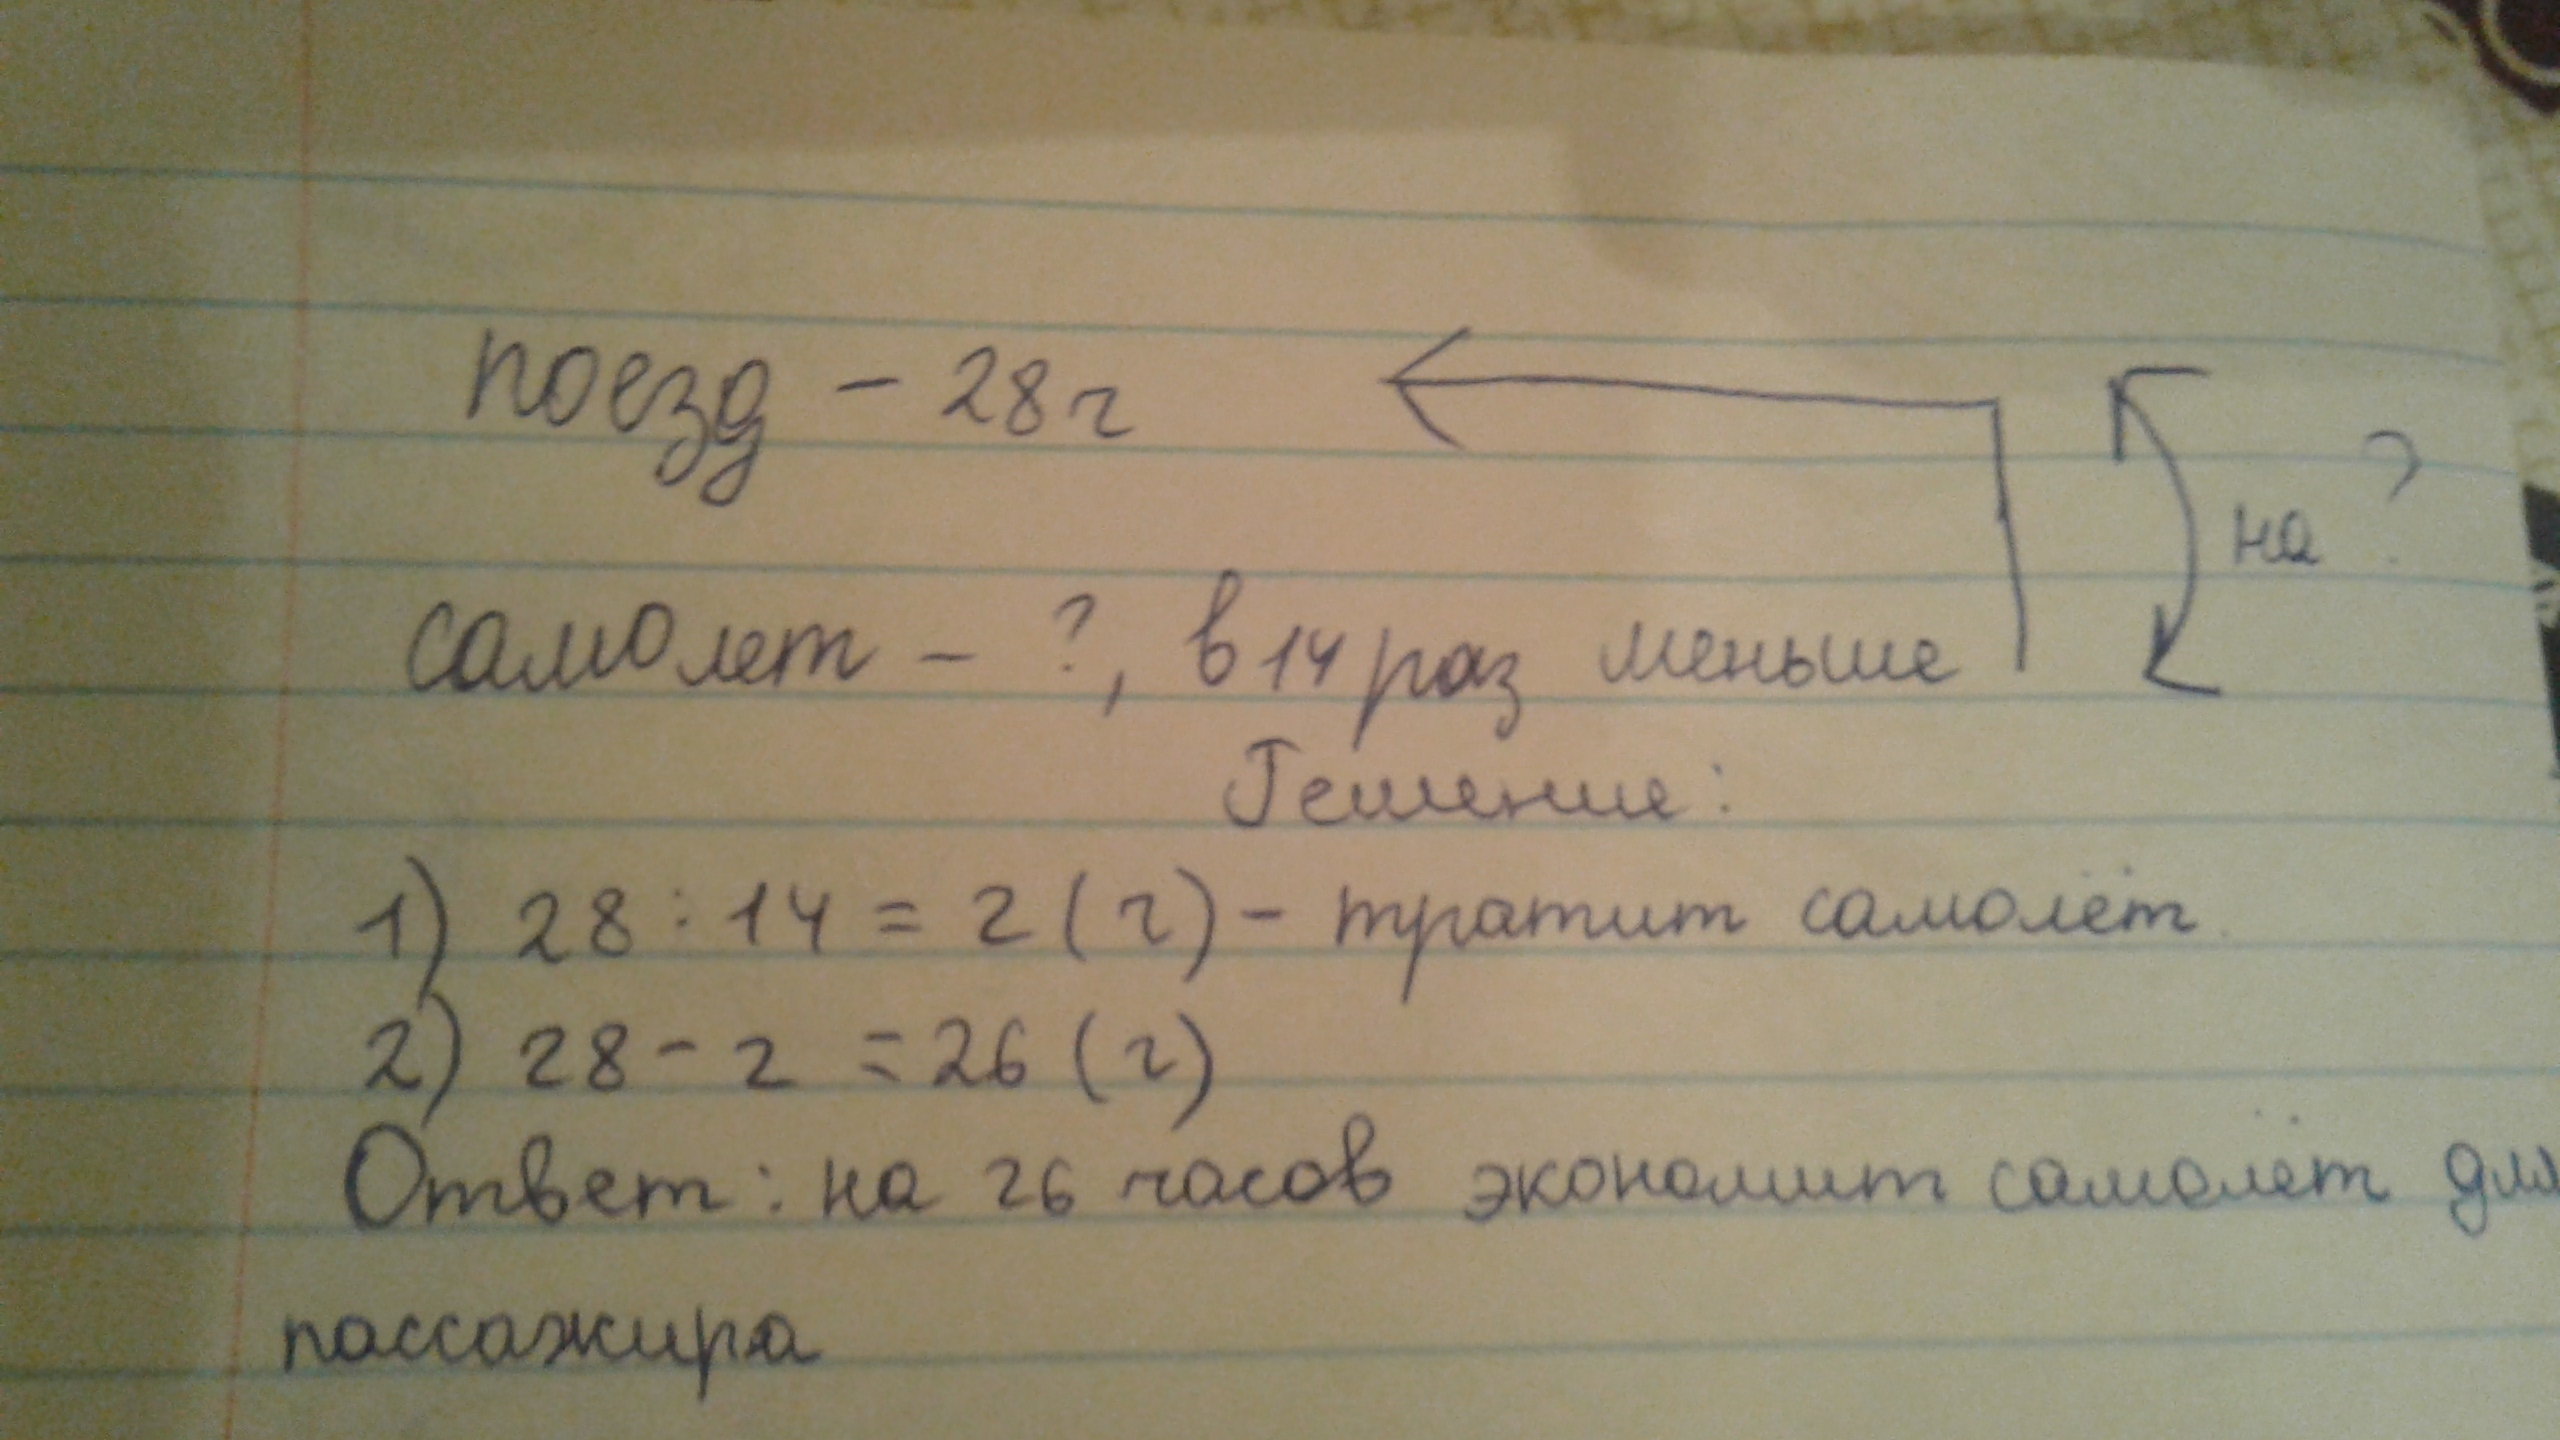 поезд - 28 ч
на ?
самолет - ?, в 14 раз меньше
Решение:
1) 28 : 14 = 2 (ч) - тратит самолёт.
2) 28 - 2 = 26 (ч)
Ответ: на 26 часов экономит самолёт для
пассажира